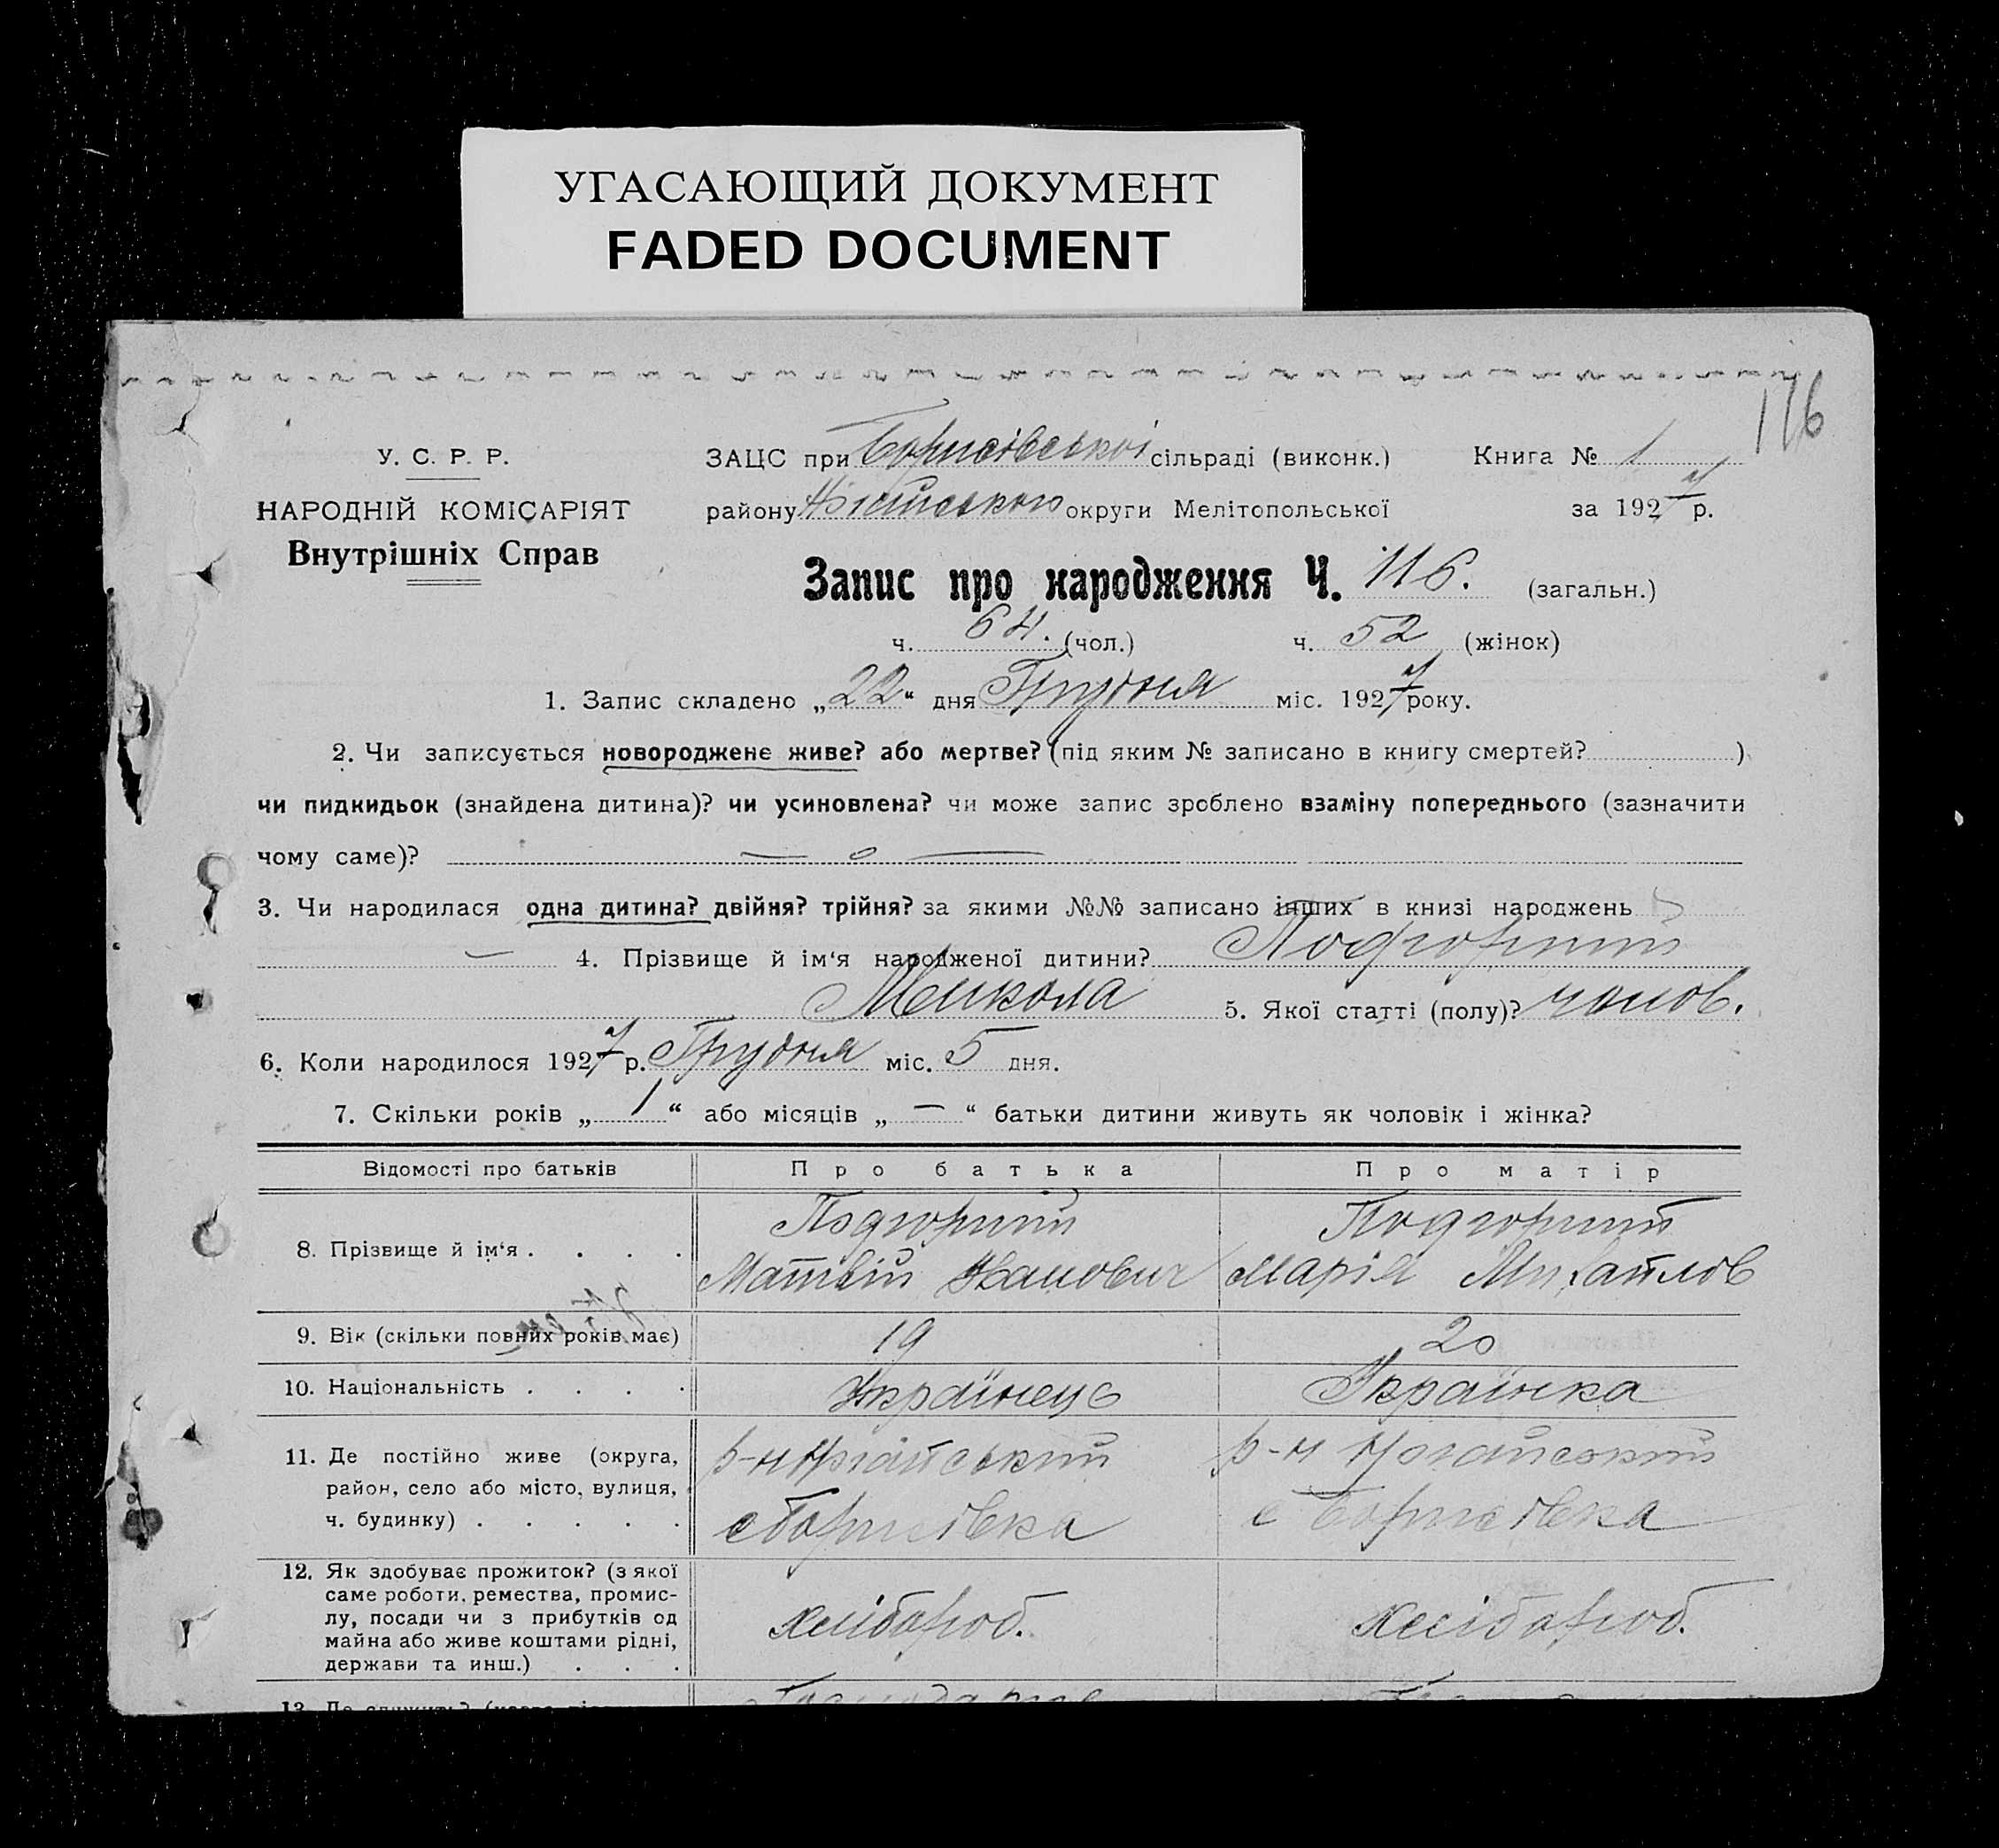 УГАСАЮЩИЙ ДОКУМЕНТ
FADED DOCUMENT
116
У. С. Р. Р.
НАРОДНІЙ КОМІСАРІЯТ
Внутрішніх Справ
ЗАЦС при Борисівської сільраді (виконк.) Книга № 1
району округи Мелітопольської за 1927 р.
Запис про народження Ч. 116. (загальн.)
ч. 64. (чол.) ч. 52 (жінок)
1. Запис складено „22“ дня Грудня міс. 1927 року.
2. Чи записується новороджене живе? або мертве? (під яким № записано в книгу смертей? )
чи пидкидьок (знайдена дитина)? чи усиновлена? чи може запис зроблено взаміну попереднього (зазначити
чому саме)? — о —
3. Чи народилася одна дитина? двійня? трійня? за якими №№ записано інших в книзі народжень
— 4. Прізвище й ім‘я народженої дитини? Подгорний
Микола 5. Якої статті (полу)? чолов.
6. Коли народилося 1927 р. Грудня міс. 5 дня.
7. Скільки років „ 1 “ або місяців „ — “ батьки дитини живуть як чоловік і жінка?
Відомості про батьків Про батька Про матір
8. Прізвище й ім‘я . . . . Подгорний Подгорний
Матвій Иванович Марія Михайлов
9. Вік (скільки повних років має) 19 20
10. Національність . . . . Українець Українка
11. Де постійно живе (округа, р-н Ногайський р-н Ногайський
район, село або місто, вулиця,
ч. будинку) . . . . . с Борисівка с Борисівка
12. Як здобуває прожиток? (з якої
саме роботи, ремества, промис-
лу, посади чи з прибутків од хлібороб. хлібороб.
майна або живе коштами рідні,
держави та инш.) . . .